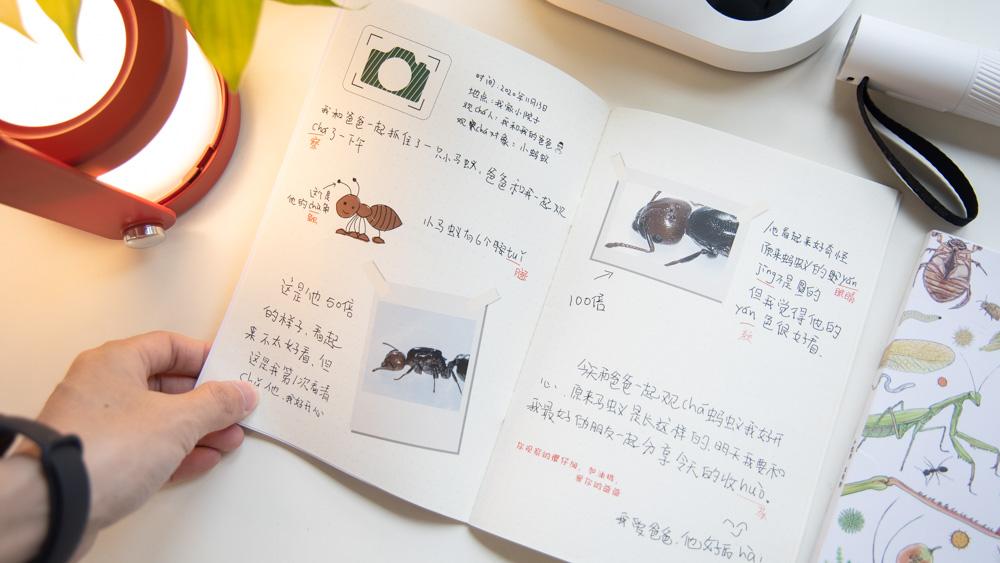 时间:2020年11月13日
地点:我家小院子
观chá人:我和我的爸爸
观察chá对像:小蚂蚁
我和爸爸一起抓住了一只小马蚁,爸爸和我一起观
chá了一下午
察
这是
他的chù角
触
小马蚁有6个腿tuǐ
腿
这是他50倍
的样子,看起
来不太好看,但
这是我第1次看清
chǔ他,我好开心
100倍
他看起来好奇怪
原来蚂蚁的眼yǎn
jīng不是圆的
眼睛
但我觉得他的
yán色很好看.
颜
今天和爸爸一起观chá蚂蚁我好开
心,原来马蚁是长这样的,明天我要和
我最好的朋友一起分享今天的收huò.
获
你观察的很仔细,加油哦,
爱你的爸爸
我爱爸爸,他好历hài